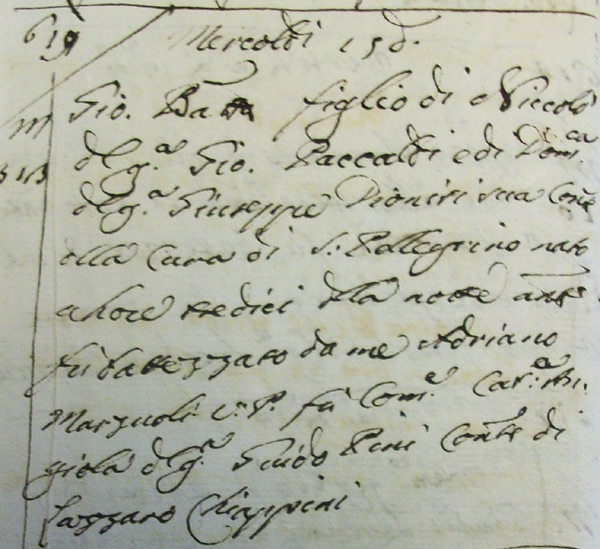 619 Mercoldi 15 d.
M Gio. Batta figlio di Niccolò
313 del q.m Gio. Paccaldi e di Dom.ca
del q.m Giuseppe Dionisi sua Cons.te
della Cura di S. Pellegrino nato
a hore tredici della notte ant.e
fù battezzato da me Adriano
Marzuoli V. P. fù Com.e Cat.a An-
giola del q.m Guido Pini Cons.te di
Lazzaro Chiappini